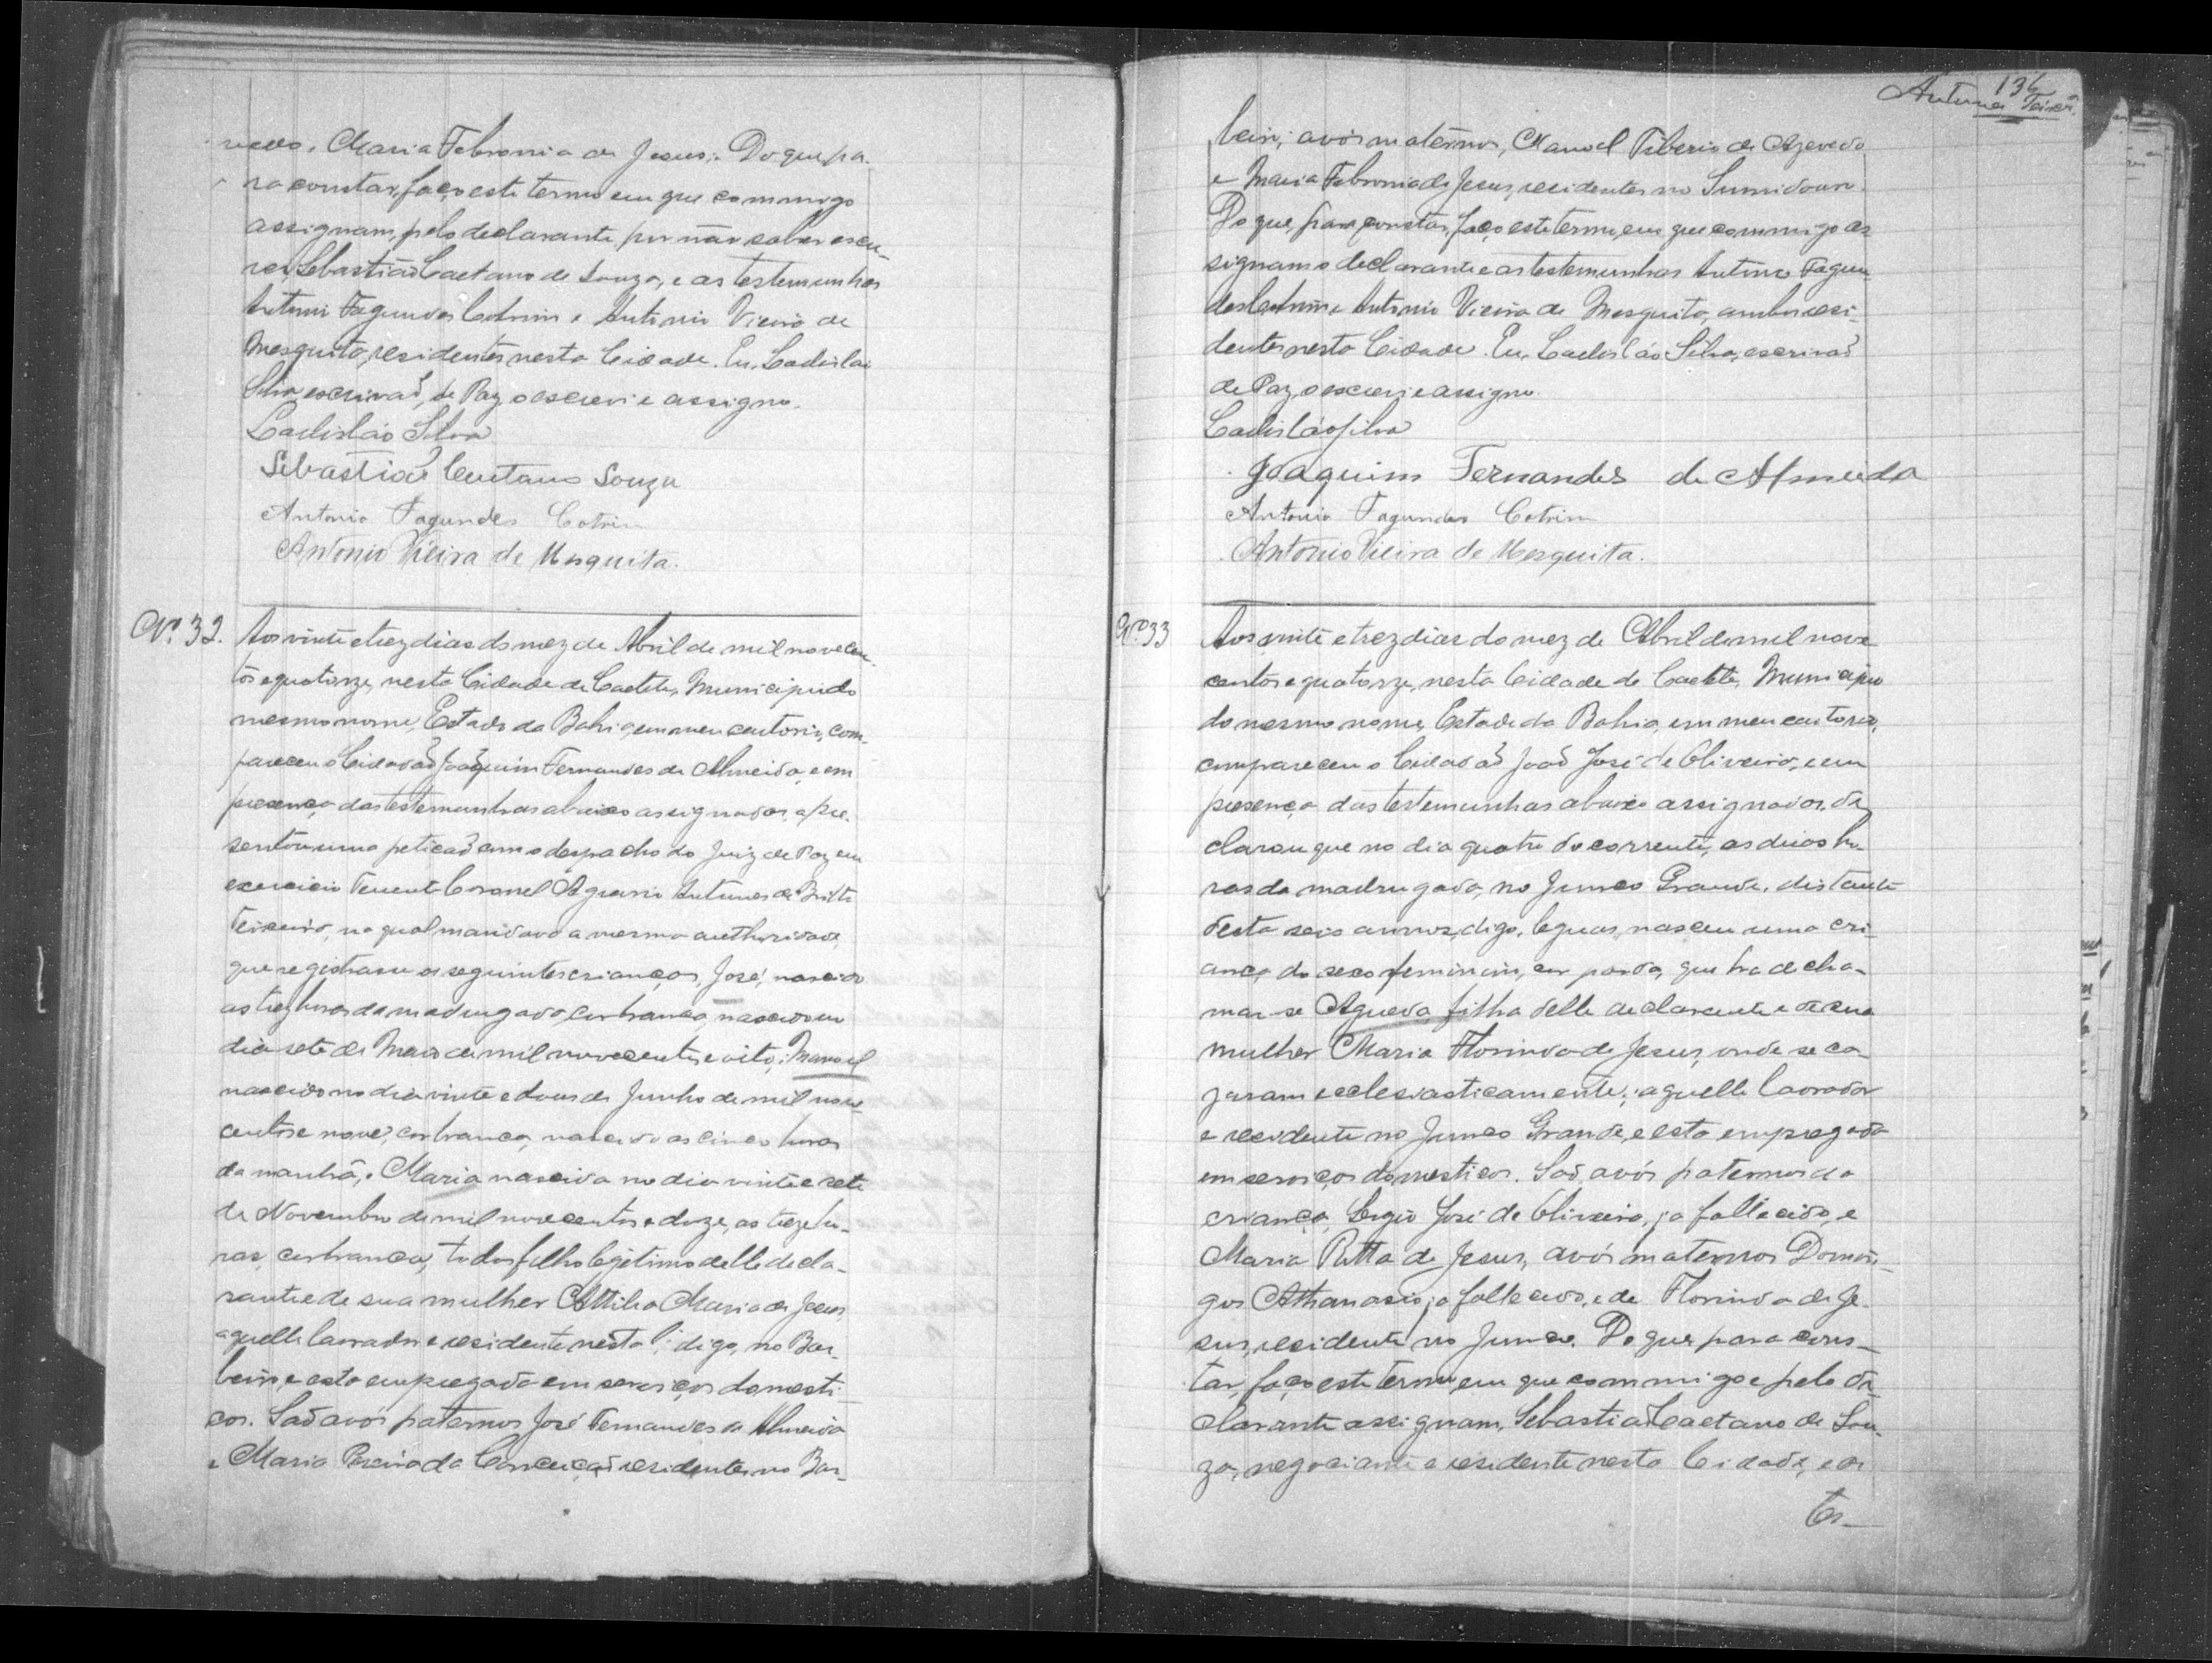 vedo, Maria Febronia de Jesus; Do que, pa-
ra constar, faço este termo em que commigo
assignam, pelo declarante por não saber escre-
ver, Sebastião Caetano de Souza, e as testemunhas
Antonio Fagundes Cotrim e Antonio Vieira de
Mesquita, residentes nesta Cidade. Eu, Ladislao
Silva, escrivaõ de Paz, o escrevi e assigno.
Ladisláo Silva
Sebastiaõ Caetano Souza
Antonio Fagundes Cotrim
Antonio Vieira de Mesquita.
Nº 32. Aos vinte e trez dias do mez de Abril de mil novecen-
tos e quatorze, nesta Cidade de Caeteté, Municipio do
mesmo nome, Estado da Bahia, em meu cartorio, com-
pareceu o Cidadaõ Joaquim Fernandes de Almeida, e em
presença das testemunhas abaixo assignadas, apre-
sentou uma petiçaõ com o despacho do Juiz de Paz em
exercicio Tenente Coronel Antunes de Britto
Teixeira, na qual mandava a mesma authoridade
que registrasse as seguintes crianças, José, nascido
as trez horas da madrugada, cor branca, nascido em
dia sete de Maio de mil novecentos e oito; Manoel
nascido no dia vinte e dous de Junho de mil nove-
centos e nove, cor branca, nascido as cinco horas
da manhã, e Maria nascida no dia vinte e sete
de Novembro de mil novecentos e doze, as treze ho-
ras, cor branca, todos filho legitimo delle decla-
rante e de sua mulher Attilia Maria de Jesus,
aquelle lavrador e residente nesta C, digo, no Bar-
beiro, e esta empregada em serviços domesti-
cos. Saõ avós paternos José Fernandes de Almeida
e Maria Pereira da Conceiçaõ residentes no Bar-
136
Antunes Teixeira
beiro; avós maternos, Manoel Tiberio de Azevedo
e Maria Febronia de Jesus, residentes no Sumidouro.
Do que, para constar, faço este termo, em que commigo as
signam o declarante e as testemunhas Antonio Fagun-
des Cotrim e Antonio Vieira de Mesquita, ambos resi-
dentes nesta Cidade. Eu, Ladisláo Silva, escrivaõ
de Paz, o escrevi e assigno.
Ladisláo Silva
Joaquim Fernandes de Almeida
Antonio Fagundes Cotrim
Antonio Vieira de Mesquita.
Nº 33 Aos vinte e trez dias do mez de Abril de mil nove
centos e quatorze, nesta Cidade de Caeteté, Municipio
do mesmo nome, Estado da Bahia, em meu cartorio,
compareceu o Cidadaõ Joaõ José de Oliveira, e em
presença das testemunhas abaixo assignadas, de
clarou que no dia quatro do corrente, as duas ho-
ras da madrugada, no Junco Grande, distante
desta seis annos, digo, leguas, nasceu uma cri-
ança do sexo feminino, cor parda, que ha de cha-
mar-se Agueda filha delle declarante e de sua
mulher Maria Florinda de Jesus, onde se ca-
zaram ecclesiasticamente; aquelle lavrador
e residente no Junco Grande, e esta empregada
em serviços domesticos. Saõ avós paternos da
criança, Sergio José de Oliveira, ja fallecido, e
Maria Ritta de Jesus, avós maternos Domin-
gos Athanasio, ja fallecido, e de Florinda de Je-
sus, residente no Junco. Do que, para cons-
tar, faço este termo, em que commigo e pelo de-
clarante assignam, Sebastiaõ Caetano de Sou-
za, negociante e residente nesta Cidade, e as
tes-